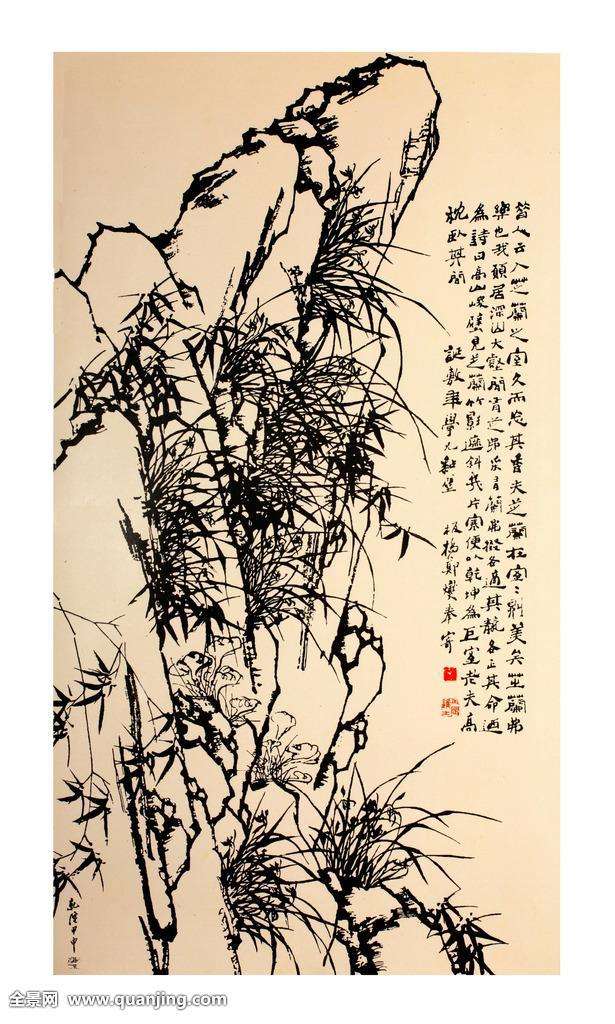 昔人云入芝蘭之室久而忘其香夫芝蘭在室〻則美矣芝蘭弗
樂也我願居深山大壑間有芝弗采有蘭弗掇各適其各正其命乃
為詩曰高山峻壁見芝蘭竹影遮斜幾片寒便以乾坤為巨室老夫高
枕臥其間
誕敷年學兄
板橋鄭燮奉寄
乾隆甲申
全景网 www.quanjing.com